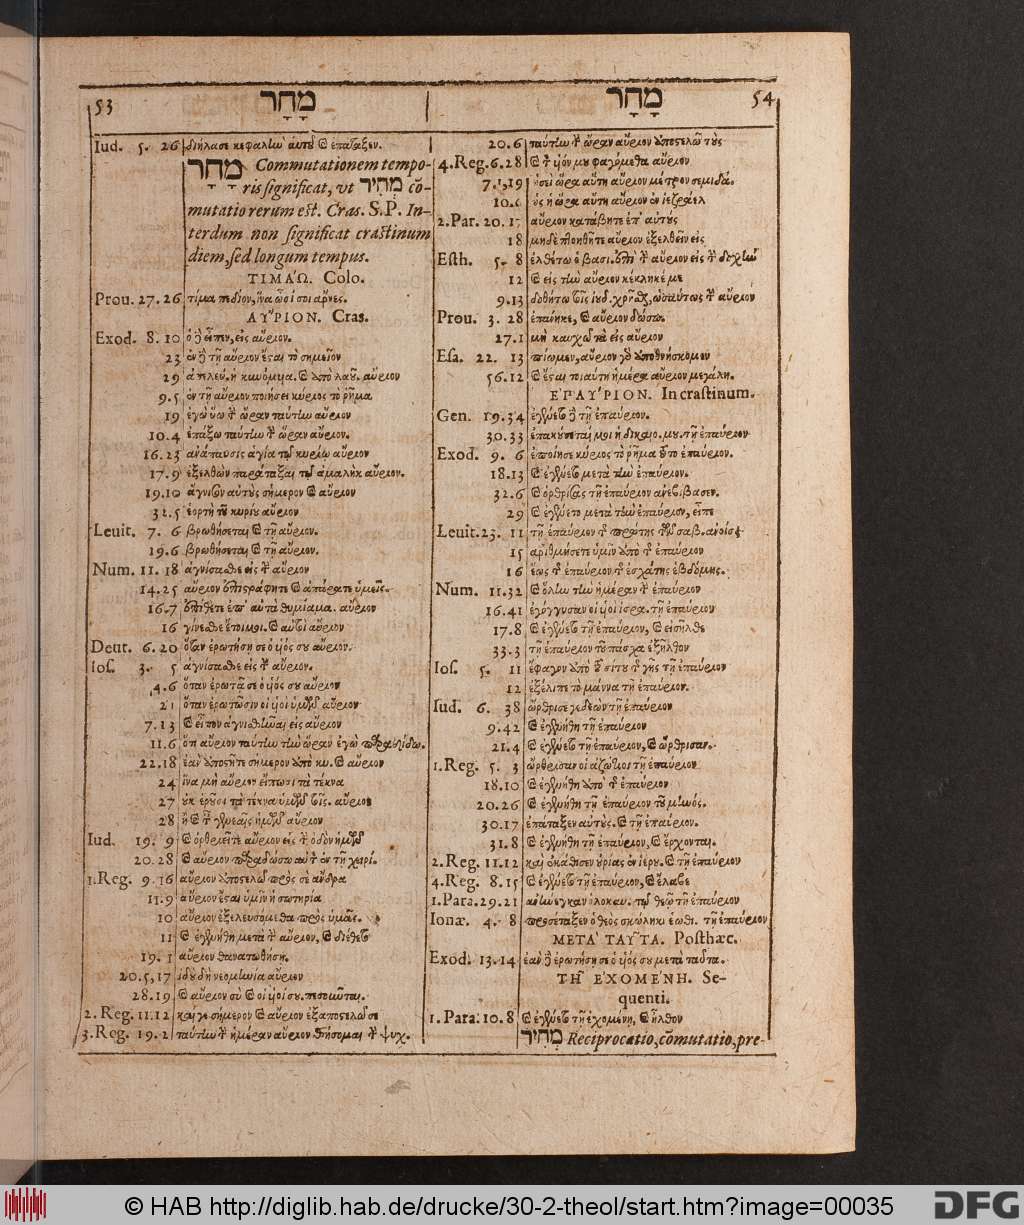 53 מָחָר
Iud. 5. 26 διήλασε κεφαλίω αυτού ϗ επάταξεν.
מָחָר Commutationem tempo-
ris significat, vt מְחִיר cō-
mutatio rerum est. Cras. S.P. In-
terdum non significat crastinum
diem, sed longum tempus.
ΤΙΜΑΏ. Colo.
Prou. 27. 26 τίμα πεδίον, ἵνα ὦσί σοι ἄρνες.
ΑΥ̓́ΡΙΟΝ. Cras.
Exod. 8. 10 ὁ δὲ εἶπεν, εἰς αὔριον.
23 ἐν δὲ τῇ αὔριον ἔσται τὸ σημεῖον
29 ἀπελεύ. ἡ κυνόμυια. ϗ ἀπὸ λαοῦ. αὔριον
9. 5 ἐν τῇ αὔριον ποιήσει κύριος τὸ ῥῆμα
19 ἐγὼ ὕω τ̀ ὥραν ταύτην αὔριον
10. 4 ἐπάξω ταύτην τ̀ ὥραν αὔριον.
16. 23 ἀνάπαυσις ἁγία τῷ κυρίῳ αὔριον
17. 9 ἐξελθὼν παράταξαι τῷ ἀμαλὴκ αὔριον.
19. 10 ἅγνισον αὐτοὺς σήμερον ϗ αὔριον
32. 5 ἑορτὴ τοῦ κυρίου αὔριον
Leuit. 7. 6 βρωθήσεται ϗ τῇ αὔριον.
19. 6 βρωθήσεται ϗ τῇ αὔριον.
Num. 11. 18 ἁγνίσασθε εἰς τ̀ αὔριον
14. 25 αὔριον ἐπιστράφητε ϗ ἀπάρατε ὑμεῖς.
16. 7 ἐπίθετε ἐπ' αὐτὰ θυμίαμα. αὔριον
16 γίνεσθε ἕτοιμοι. ϗ αὐτοὶ αὔριον
Deut. 6. 20 ὅταν ἐρωτήσῃ σε ὁ υἱός σου αὔριον.
Ios. 3. 5 ἁγνίσασθε εἰς τ̀ αὔριον.
4. 6 ὅταν ἐρωτᾷ σε ὁ υἱός σου αὔριον
21 ὅταν ἐρωτῶσιν οἱ υἱοὶ ὑμῶν αὔριον
7. 13 ϗ εἶπον ἁγνισθῆναι εἰς αὔριον
11. 6 ὅτι αὔριον ταύτην τὴν ὥραν ἐγὼ παραδίδω.
22. 18 ἐὰν ἀποστῆτε σήμερον ἀπὸ κυ. ϗ αὔριον
24 ἵνα μὴ αὔριον εἴπωσι τὰ τέκνα
27 οὐκ ἐροῦσι τὰ τέκνα ὑμῶν τοῖς. αὔριον
28 ἢ ϗ τ̀ γενεαῖς ἡμῶν αὔριον
Iud. 19. 9 ϗ ὀρθριεῖτε αὔριον εἰς τ̀ ὁδὸν ἡμῶν
20. 28 ϗ αὔριον παραδώσω αὐτ̀ ἐν τῇ χειρί.
1. Reg. 9. 16 αὔριον ἀποστελῶ πρός σε ἄνδρα
11. 9 αὔριον ἔσται ὑμῖν ἡ σωτηρία
10 αὔριον ἐξελευσόμεθα πρὸς ὑμᾶς.
11 ϗ ἐγενήθη μετὰ τ̀ αὔριον, ϗ διέθετο
19. 1 αὔριον θανατωθήσῃ.
20. 5, 17 ἰδοὺ δὴ νεομηνία αὔριον
28. 19 ϗ αὔριον σὺ ϗ οἱ υἱοί σου. πεσοῦνται.
2. Reg. 11. 12 καί γε σήμερον ϗ αὔριον ἐξαποστελῶ σε
3. Reg. 19. 2 ταύτην τ̀ ἡμέραν αὔριον θήσομαι τ̀ ψυχ.
מָחָר 54
20. 6 ταύτην τ̀ ὥραν αὔριον ἀποστελῶ τοὺς
4. Reg. 6. 28 ϗ τ̀ υἱόν μου φαγόμεθα αὔριον
7. 1, 19 ὡσεὶ ὥρα αὕτη αὔριον μέτρον σεμιδά.
10. 6 ὡς ἡ ὥρα αὕτη αὔριον ἐν ἰεζραελ
2. Par. 20. 17 αὔριον κατάβητε ἐπ' αὐτούς
18 μηδὲ πτοηθῆτε αὔριον ἐξελθεῖν εἰς
Esth. 5. 8 ἐλθέτω ὁ βασι. ἐπὶ τ̀ αὔριον εἰς τ̀ δοχὴν
12 ϗ εἰς τὴν αὔριον κέκληκέ με
9. 13 δοθήτω τοῖς ἰουδ. χρῆσθ, ὡσαύτως τ̀ αὔριον
Prou. 3. 28 ἐπάνηκε, ϗ αὔριον δώσω.
27. 1 μὴ καυχῶ τὰ εἰς αὔριον
Esa. 22. 13 πίωμεν, αὔριον γὰρ ἀποθνήσκομεν
56. 12 ϗ ἔσται τοιαύτη ἡμέρα αὔριον μεγάλη.
ΕΠΑΥ̓́ΡΙΟΝ. In crastinum.
Gen. 19. 34 ἐγένετο δὲ τῇ ἐπαύριον.
30. 33 ἐπακούσεταί μοι ἡ δικαιο. μου. τῇ ἐπαύριον
Exod. 9. 6 ἐποίησε κύριος τὸ ῥῆμα τοῦτο ἐπαύριον.
18. 13 ϗ ἐγένετο μετὰ τὴν ἐπαύριον.
32. 6 ϗ ὀρθρίσας τῇ ἐπαύριον ἀνεβίβασεν.
29 ϗ ἐγένετο μετὰ τὴν ἐπαύριον, εἶπε
Leuit. 23. 11 τῇ ἐπαύριον τ̀ πρώτης τῶν σαβ. ἀνοίσ
15 ἀριθμήσετε ὑμῖν ἀπὸ τ̀ ἐπαύριον
16 ἕως τ̀ ἐπαύριον τ̀ ἐσχάτης ἑβδόμης.
Num. 11. 32 ϗ ὅλην τὴν ἡμέραν τ̀ ἐπαύριον
16. 41 ἐγόγγυσαν οἱ υἱοὶ ἰσρα. τῇ ἐπαύριον
17. 8 ϗ ἐγένετο τῇ ἐπαύριον, ϗ εἰσῆλθε
33. 3 τῇ ἐπαύριον τοῦ πάσχα ἐξῆλθον
Ios. 5. 11 ἔφαγον ἀπὸ τοῦ σίτου τ̀ γῆς τῇ ἐπαύριον
12 ἐξέλιπε τὸ μάννα τῇ ἐπαύριον.
Iud. 6. 38 ὤρθρισε γεδεὼν τῇ ἐπαύριον
9. 42 ϗ ἐγενήθη τῇ ἐπαύριον
21. 4 ϗ ἐγένετο τῇ ἐπαύριον, ϗ ὤρθρισαν.
1. Reg. 5. 3 ὤρθρισαν οἱ ἀζώτιοι τῇ ἐπαύριον
18. 10 ϗ ἐγενήθη ἀπὸ τ̀ ἐπαύριον
20. 26 ϗ ἐγενήθη τῇ ἐπαύριον τοῦ μηνός.
30. 17 ἐπάταξεν αὐτούς. ϗ τῇ ἐπαύριον.
31. 8 ϗ ἐγενήθη τῇ ἐπαύριον, ϗ ἔρχονται.
2. Reg. 11. 12 καὶ ἐκάθισεν οὐρίας ἐν ἱερου. ϗ τῇ ἐπαύριον
4. Reg. 8. 15 ϗ ἐγένετο τῇ ἐπαύριον, ϗ ἔλαβε
1. Para. 29. 21 ἀνήνεγκαν ὁλοκαυ. τῷ θεῷ τῇ ἐπαύριον
Ionæ. 4. 8 προσέταξεν ὁ θεὸς σκώληκι ἑωθι. τῇ ἐπαύριον
ΜΕΤΑ' ΤΑΥ͂ΤΑ. Posthæc.
Exod. 13. 14 ἐὰν δὲ ἐρωτήσῃ σε ὁ υἱός σου μετὰ ταῦτα.
ΤΗ͂ ἘΧΟΜΕΝΗ. Se-
quenti.
1. Para. 10. 8 ϗ ἐγένετο τῇ ἐχομένῃ, ϗ ἦλθον
מְחִיר Reciprocatio, cōmutatio, pre-
© HAB http://diglib.hab.de/drucke/30-2-theol/start.htm?image=00035
DFG